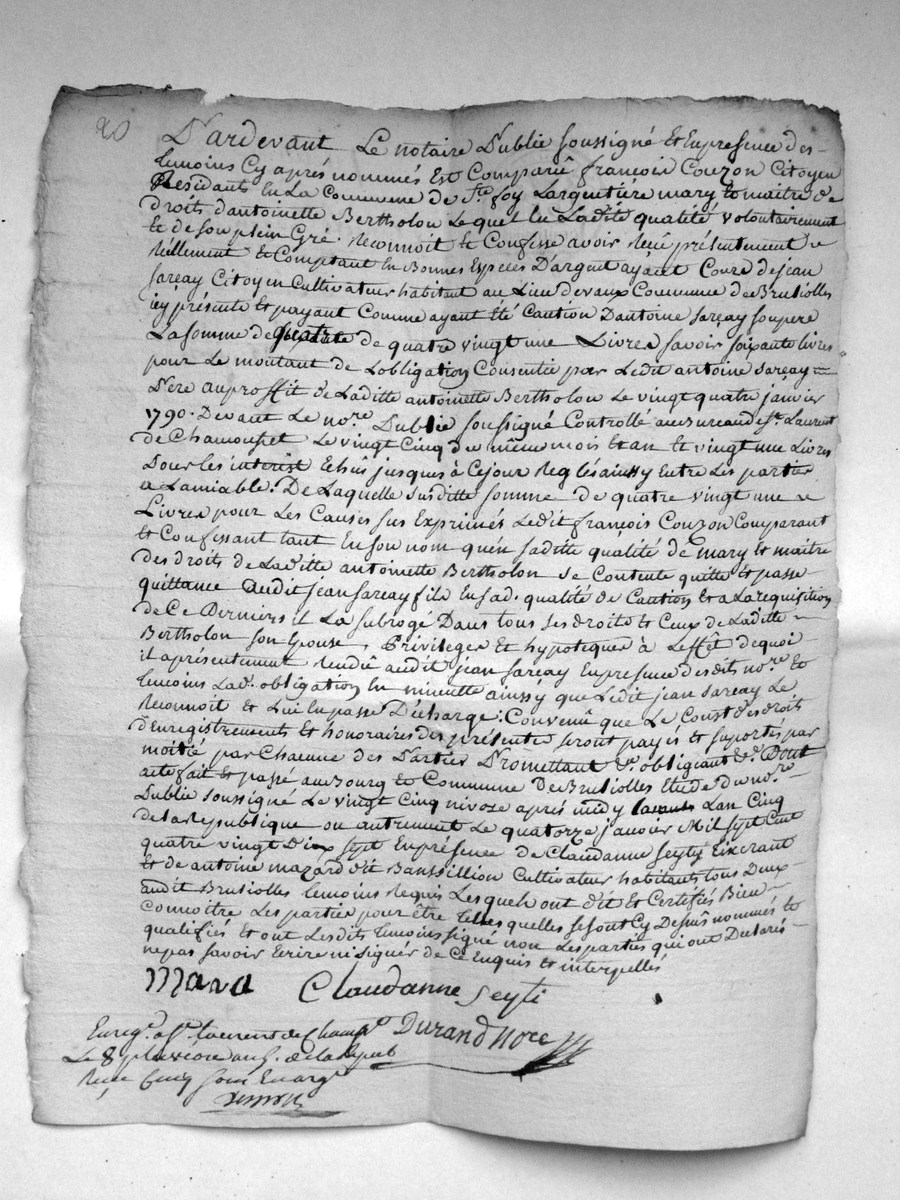 Pardevant Le notaire Public soussigné et En presence des
temoins Cy aprés nommés Est Comparû françois Couzon Citoyen
Residants En La Commune de Ste foy Largentiére mary et maitre de
droits dantoinette Bertholon Le quel En Laditte qualité volontairement
et de son plein Gré. Reconnoit et Confesse avoir Reçû présentement
Réellement et Comptant En Bonnes Espéces D'argent ayant Cours de jean
Sarcay Citoyen Cultivateur habitant au Lieu devaux Commune de Brusiolles
icy présente et payant Comme ayant Eté Caution Dantoine Sarcay son pere
La Somme de quatre de quatre vingt une Livres Savoir Soixante livres
pour Le montant de Lobligation Consentie par Ledit antoine Sarcay
Pére au proffit de Laditte antoinette Bertholon Le vingt quatre janvier
1790. Devant Le nore. Public soussigné Controllé au Bureau de St. Laurent
de Chamousset Le vingt Cinq du même mois et an et vingt une Livres
Pour les interest Echûs jusques à Cejour Reglés aussy Entre Les parties
a Lamiable. De Laquelle Susditte Somme de quatre vingt une
Livres pour Les Causes Sus Exprimés Ledit françois Couzon Comparant
et Confessant tant En son nom quén saditte quálité de mary et maitre
des droits de Laditte antoinette Bertholon se Contente quitte et passe
quittance audit jean Sarcay fils En sad. qualité de Caution et a La requisition
de Ce Dernier il La Subrogé Dans tous Ses droits et Ceux de Laditte
Bertholon Son Epouse, Privileges et hypoteques à Leffêt dequoi
il a présentement Rendû audit jean Sarcay En presence desdits nore. et
temoins Lad. obligation En minutte ainssy que Ledit jean Sarcay Le
Reconnoit et Lui En passe Décharge: Convenû que Le Coust des droits
d'Enregistrements et honoraires des présentes seront payés et suportés par
moitié par Chacune des Parties Promettant &a. obligeant &a. Dont
acte fait et passé au Bourg et Commune De Brusiolles Etude du nore.
Public soussigné Le vingt Cinq nivoze après midy Lan Cinq
de la Republique ou autrement Le quatorze janvier Mil Sept Cent
quatre vingt Dix Sept En présence de Claudanne Seyty
et de antoine mazard dit Banssillion Cultivateur habitants tous Deux
audit Brusiolles temoins Requis Lesquels ont dit et Certifiés Bien
Connoitre Les parties pour être telles quelles se sont Cy Dessûs nommés et
qualifiés et ont Lesdits temoins signé non Les parties qui ont Declarés
ne pas savoir Ecrire ni signér de Ce Enquis et interpellés
Claudanne Seyti
Durand Nore
Enregé. a St. Laurent de Chamt
Le 8 pluviose an 5. de la Repub
Reçu Cinq sous En arg